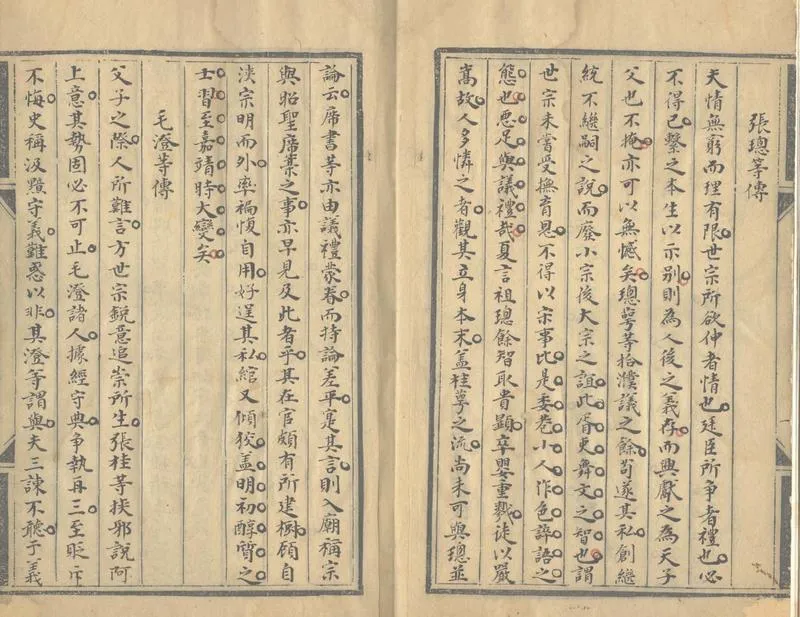 張璁等傳
天情無窮而理有限世宗所欲伸者情也廷臣所爭者禮也必
不得已繫之本生以示別則為人後之義存而興獻之為天子
父也不掩亦可以無憾矣璁萼等拾濮議之餘苟遂其私創繼
統不繼嗣之說而廢小宗後大宗之誼此胥吏舞文之智也謂
世宗未嘗受撫育恩不得以宗事比是委巷小人作色誶語之
態也惡足與議禮哉夏言祖璁餘智取貴顯卒嬰重戮徒以嚴
嵩故人多憐之者觀其立身本末蓋桂萼之流尚未可與璁並
論云席書等亦由議禮蒙眷而持論差平寔其言則入廟稱宗
與昭聖席藁之事亦早見及此者乎其在官頗有所建樹顧自
浹宗明而外率褊愎自用好逞其私綰又傾狡蓋明初醇質之
士習至嘉靖時大變矣
毛澄等傳
父子之際人所難言方世宗銳意追崇所生張桂等挾邪說阿
上意其勢固必不可止毛澄諸人據經守典爭執再三至貶斥
不悔史稱汲黯守義難惑以非其澄等謂與夫三諫不聽于義